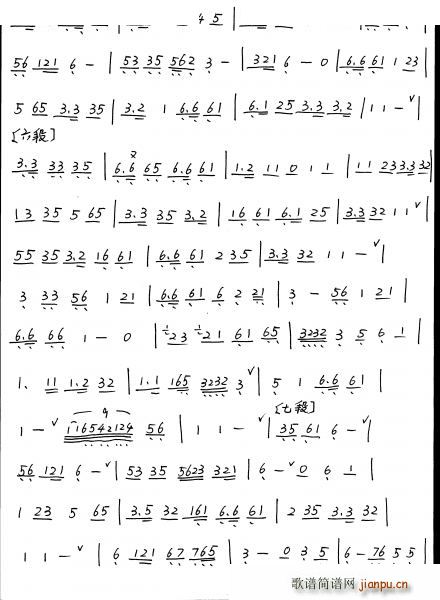 4 5 |
56 121 6 - | 53 35 562 3 - | 321 6 - 0 | 6.6 61 1 23 |
5 65 3.3 35 | 3.2 1 6.6 61 | 6.1 25 3.3 3.2 | 1 1 - ˅ |
〔六段〕
3.3 33 35 | 6.6 65 6.6 61 | 1.2 11 0 1 1 | 11 23 3.3 32
13 35 5 65 | 3.3 35 3.2 | 16 61 6.1 25 | 3.3 32 1 1 ˅ |
55 35 3.2 16 61 | 6.6 61 2 35 | 3.3 32 1 1 - ˅ |
3 33 56 1 21 | 6.6 61 6 2 21 | 3 - 56 1 21 |
6.6 66 1 - 0 | 23 21 61 65 | 3232 3 5 6 1 |
1. 11 1.2 32 | 1.1 165 3232 3 ˅ | 5 1 6.6 61 |
〔七段〕
1 - ˅ 116542124 56 | 1 1 - ˅ | 35 61 6 - ˅ |
56 121 6 - ˅ | 53 35 5623 321 | 6 - ˅ 0 6 1 |
1 23 5 65 | 3.5 32 161 6.6 61 | 2 35 3.3 32 |
1 1 - ˅ | 6 121 67 765 | 3 - 0 3 5 | 6 - 76 5 5 |
歌谱简谱网
jianpu.cn